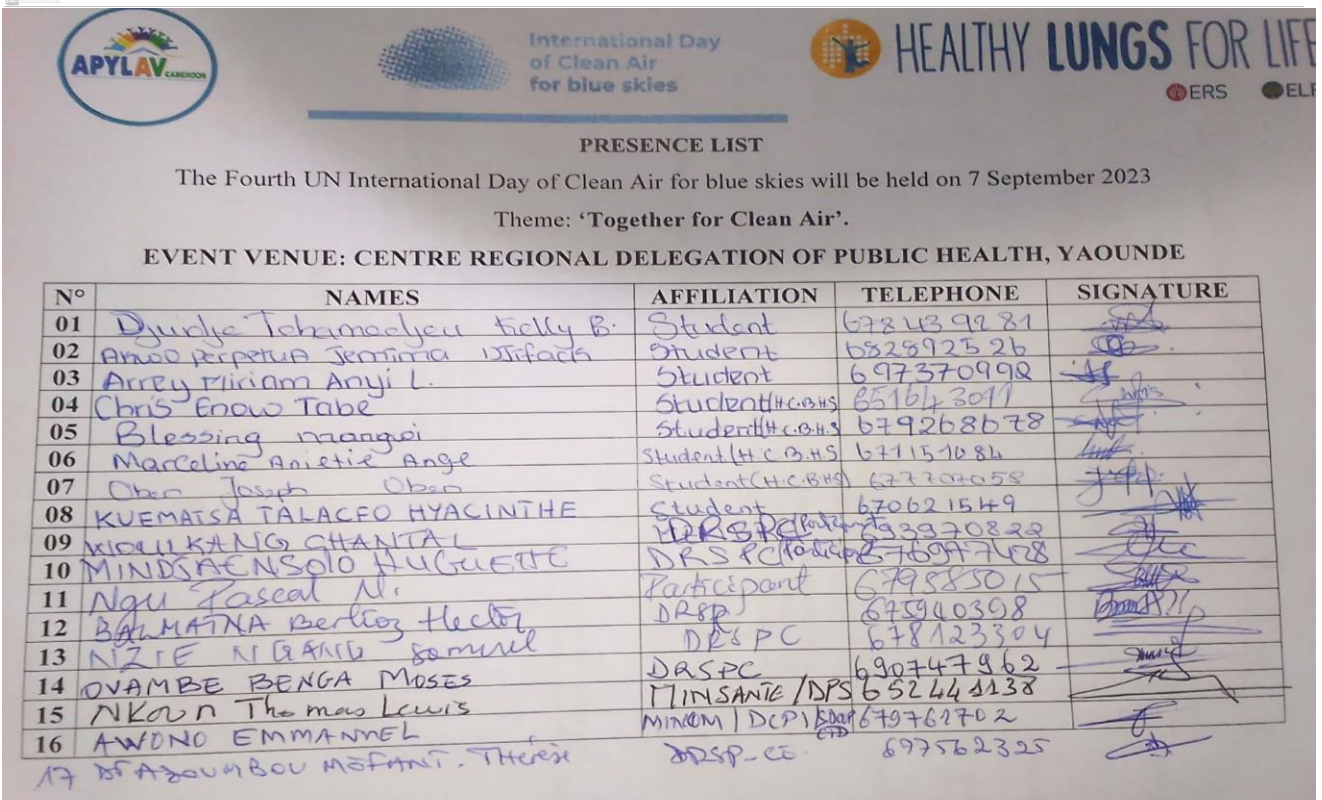 APYLAV CAMEROON
International Day
of Clean Air
for blue skies
HEALTHY LUNGS FOR LIFE
ERS ELF
PRESENCE LIST
The Fourth UN International Day of Clean Air for blue skies will be held on 7 September 2023
Theme: ‘Together for Clean Air’.
EVENT VENUE: CENTRE REGIONAL DELEGATION OF PUBLIC HEALTH, YAOUNDE
N° NAMES AFFILIATION TELEPHONE SIGNATURE
01 Djuidje Tchamadjeu Kelly B. Student 678439281
02 Perpetua Jemima Student 682892526
03 Arrey Miriam Anyi L. Student 697370992
04 Chris Enow Tabe Student(H.C.B.HS)
05 Blessing Student(H.C.B.H.S 679268678
06 Marceline Anietie Ange Student(H.C.B.HS 671151084
07 Oben Joseph Oben Student(H.C.BHS) 677707058
08 KUEMATSA TALACFO HYACINTHE Student 670621549
09 CHANTAL DRSPC 693970822
10 HUGUETTE DRSPC
11 Ngu Pascal N. Participant 679585015
12 BALMAINA Berlioz Hector DRSP 675940398
13 Samuel DRSPC 678123304
14 OVAMBE BENGA MOSES DRSPC 690747962
15 Nkoun Thomas Lewis MINSANTE/DPS 652441138
16 AWONO EMMANUEL MINCOM/DCPI 679761702
17 AZOUMBOU MEFANT. Thérèse DRSP-CE 697562325